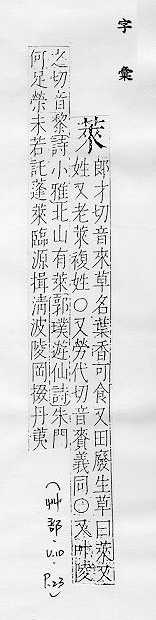 字彙
萊
郎才切音來草名葉香可食又田廢生草曰萊又
姓又老萊複姓〇又勞代切音賚義同〇又叶陵
之切音黎詩小雅北山有萊郭璞遊仙詩朱門
何足榮未若託蓬萊臨源揖淸波陵岡掇丹荑
(艸部.V.10.P.23)